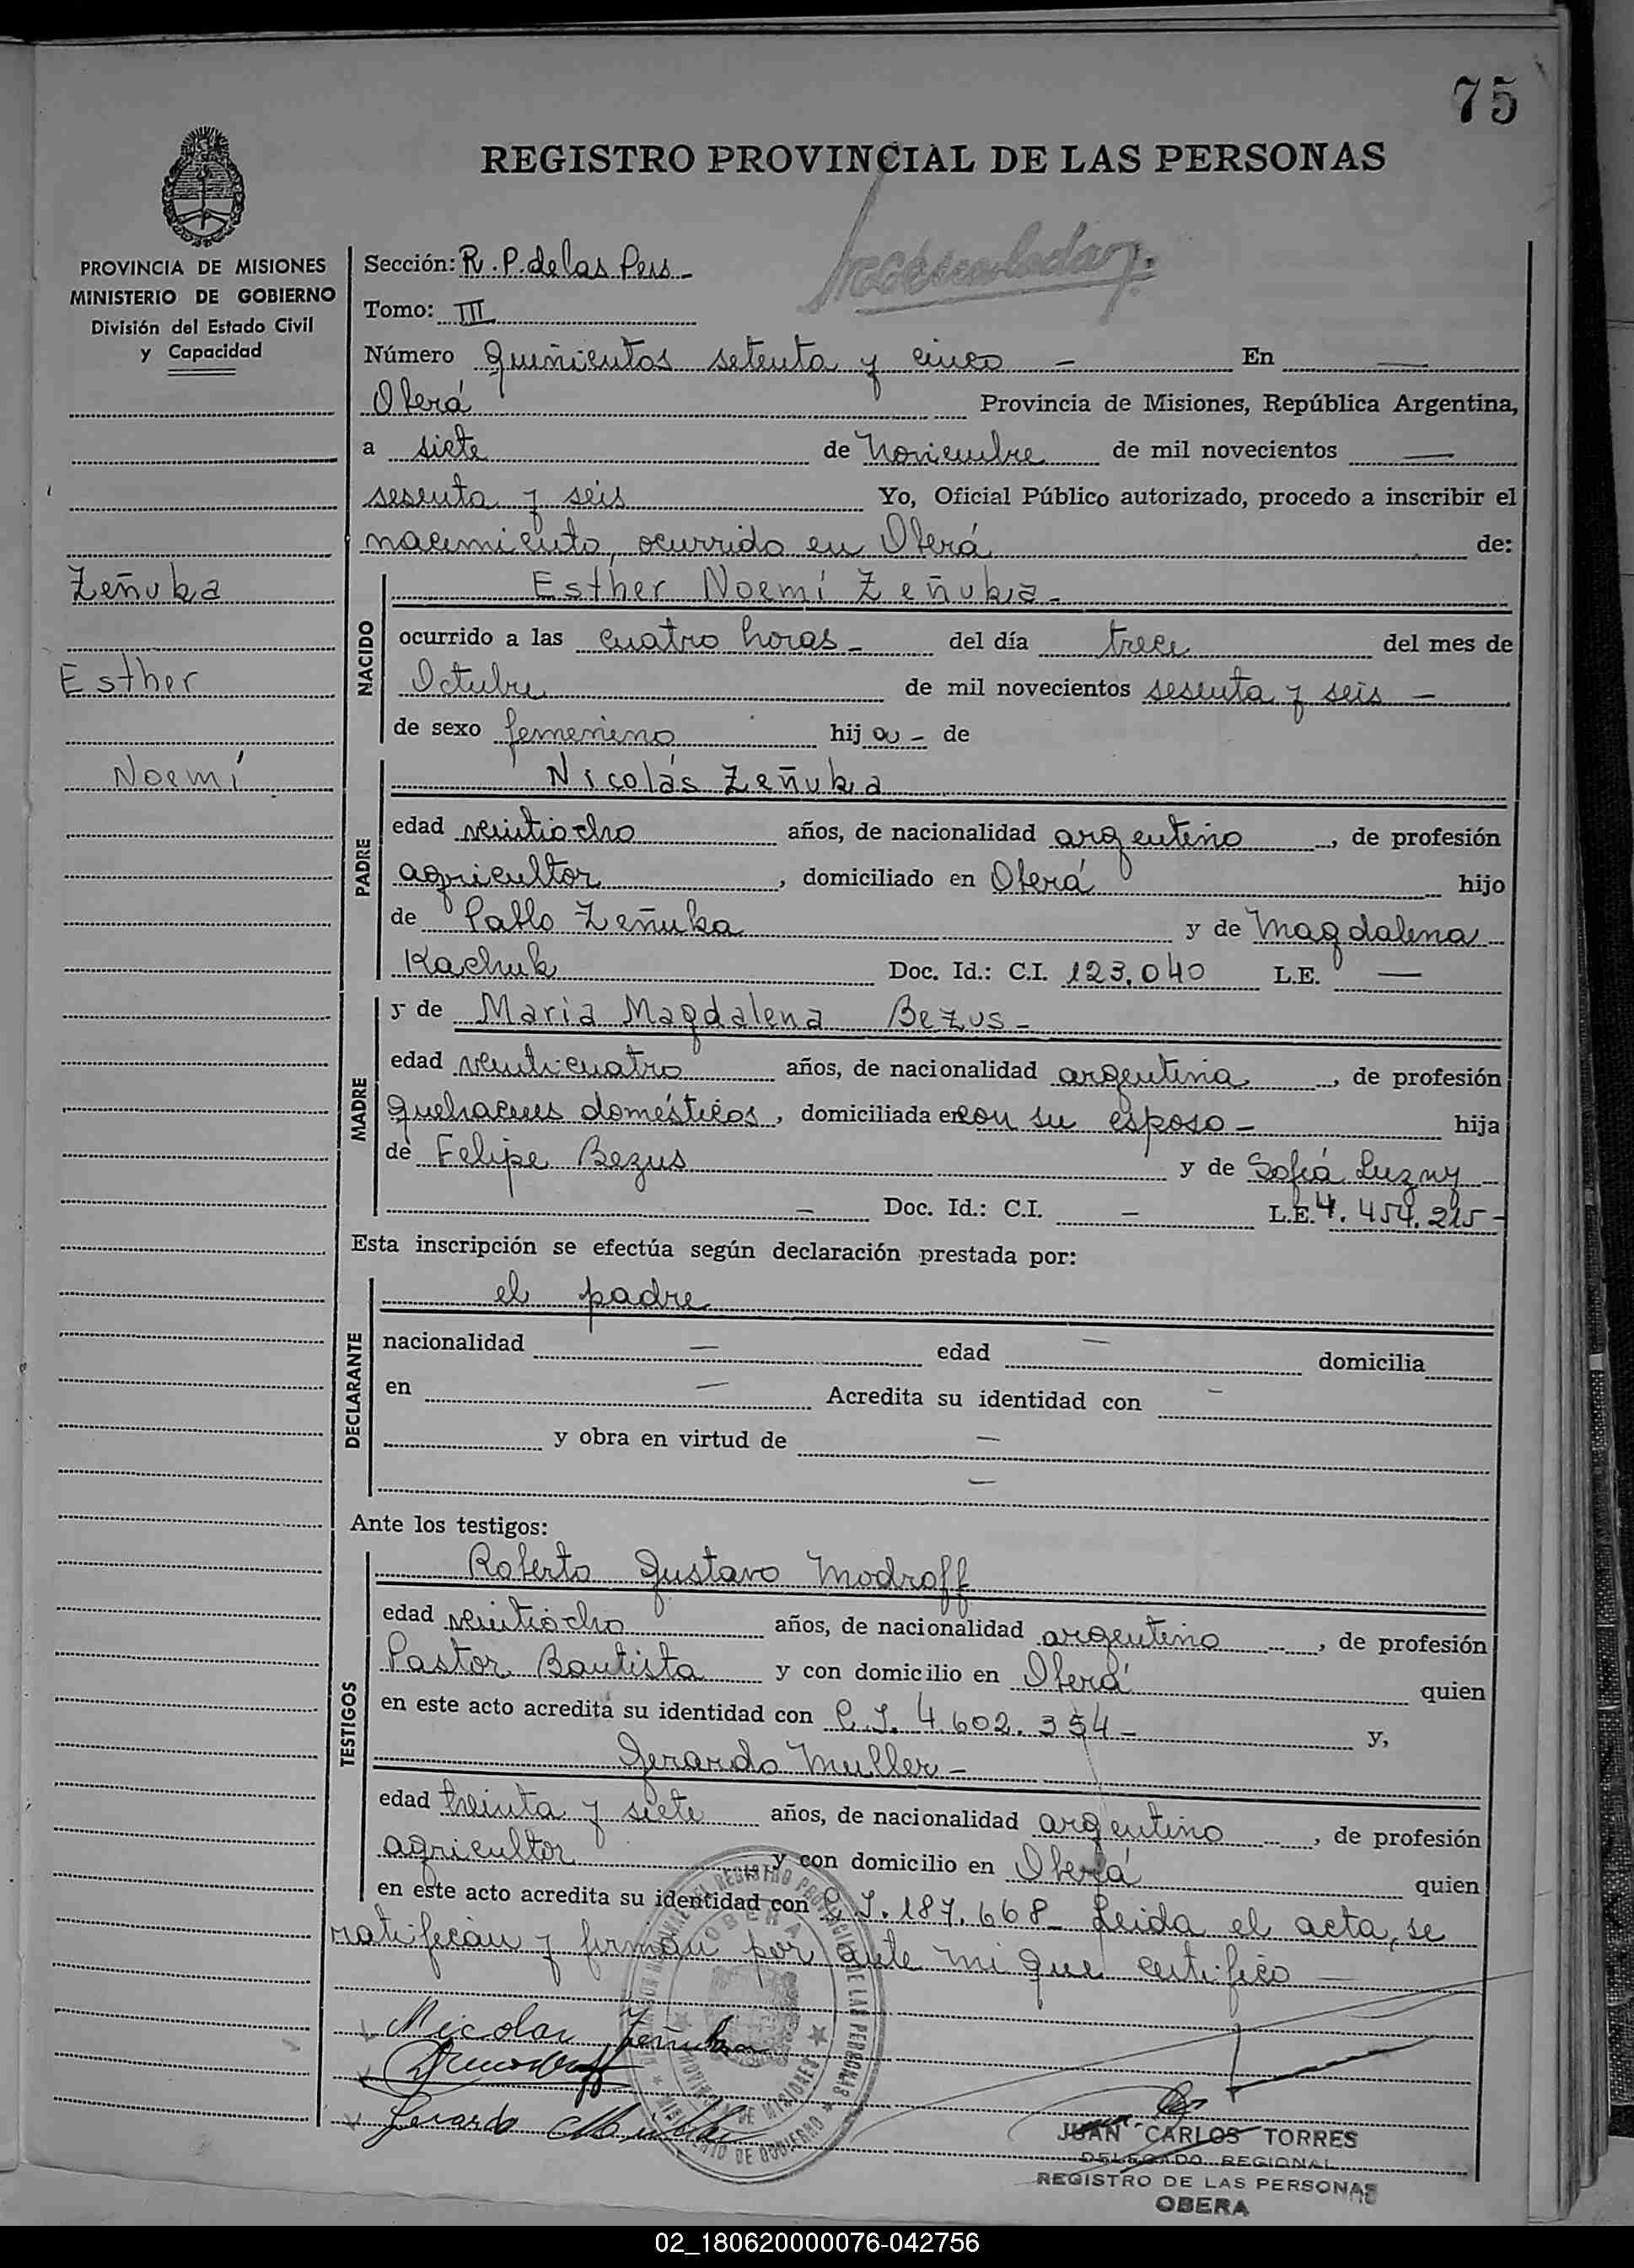 75
REGISTRO PROVINCIAL DE LAS PERSONAS
PROVINCIA DE MISIONES
MINISTERIO DE GOBIERNO
División del Estado Civil
y Capacidad
Zeñuka
Esther
Noemí
Sección: R. P. de las Pers -
Tomo: III
Número quinientos setenta y cinco - En —
Oberá Provincia de Misiones, República Argentina,
a siete de Noviembre de mil novecientos —
sesenta y seis Yo, Oficial Público autorizado, procedo a inscribir el
nacimiento, ocurrido en Oberá de:
NACIDO
Esther Noemí Zeñuka -
ocurrido a las cuatro horas - del día trece del mes de
Octubre de mil novecientos sesenta y seis -
de sexo femenino hij a - de
PADRE
Nicolás Zeñuka
edad veintiocho años, de nacionalidad argentino, de profesión
agricultor, domiciliado en Oberá hijo
de Pablo Zeñuka y de Magdalena
Kachuk Doc. Id.: C.I. 123.040 L.E. —
MADRE
y de Maria Magdalena Bezus -
edad veinticuatro años, de nacionalidad argentina, de profesión
quehaceres domésticos, domiciliada en con su esposo - hija
de Felipe Bezus y de Sofía Luzny
- Doc. Id.: C.I. - L.E. 4.454.215 -
Esta inscripción se efectúa según declaración prestada por:
DECLARANTE
el padre
nacionalidad — edad — domicilia
en — Acredita su identidad con -
y obra en virtud de —
—
Ante los testigos:
TESTIGOS
Roberto Gustavo Modroff
edad veintiocho años, de nacionalidad argentino, de profesión
Pastor Bautista y con domicilio en Oberá quien
en este acto acredita su identidad con C.I. 4.602.354 - y,
Gerardo Muller -
edad treinta y siete años, de nacionalidad argentino, de profesión
agricultor y con domicilio en Oberá quien
en este acto acredita su identidad con C.I. 187.668 - Leida el acta, se
ratifican y firman por ante mi que certifico —
Nicolas Zeñuka
Gerardo Muller
OBERA
PROVINCIA DE MISIONES
MINISTERIO DE GOBIERNO
JUAN CARLOS TORRES
DELEGADO REGIONAL
REGISTRO DE LAS PERSONAS
OBERA
02_180620000076-042756